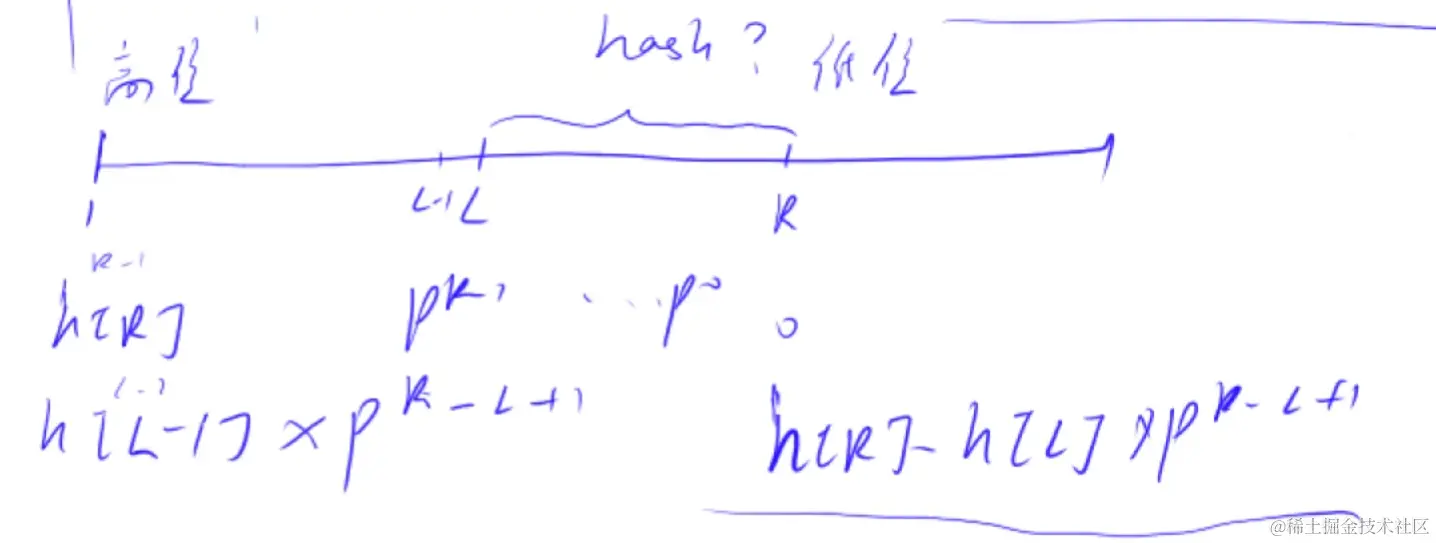 hash?
高位 低位
1 L-1 L R
R-1
h[R] p^{R-1} ... p^0 0
h[L-1] × p^{R-L+1} h[R]-h[L]×p^{R-L+1}
@稀土掘金技术社区